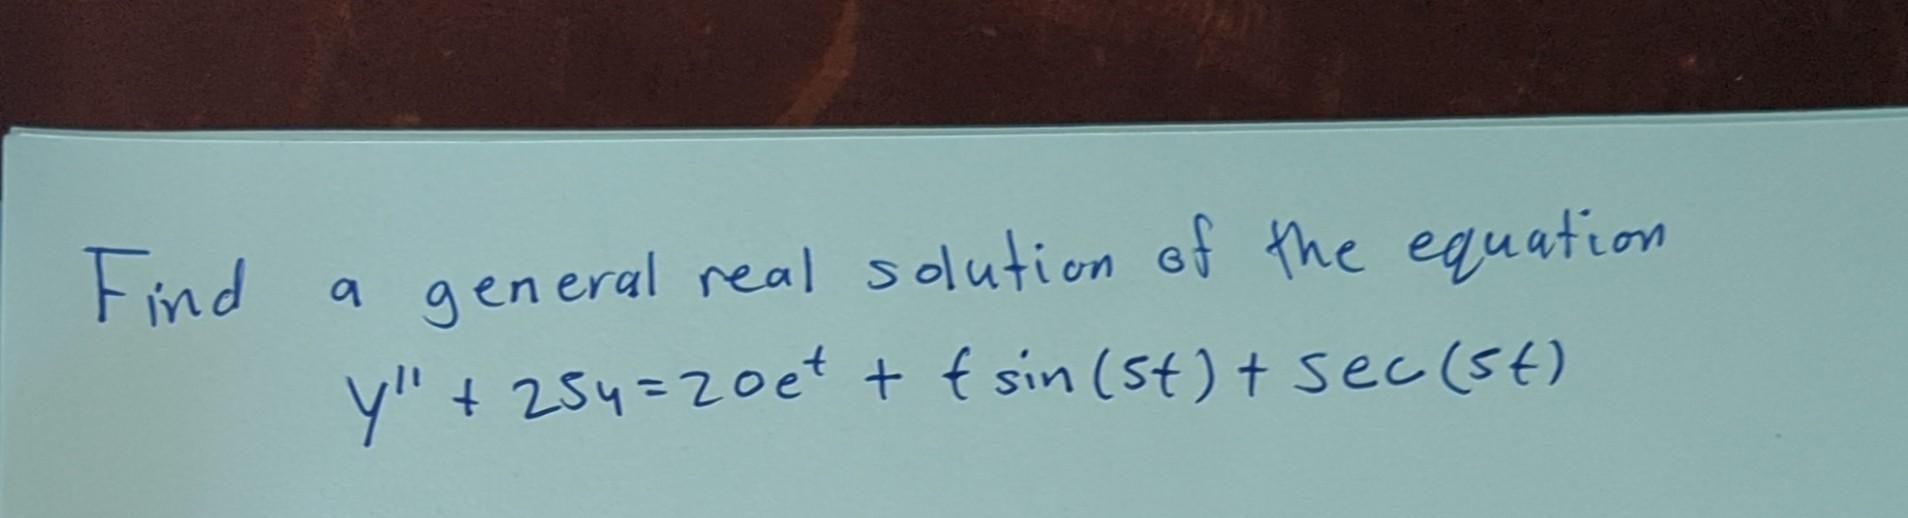 Find a general real solution of the equation
y'' + 25y = 20e^t + t sin(5t) + sec(5t)